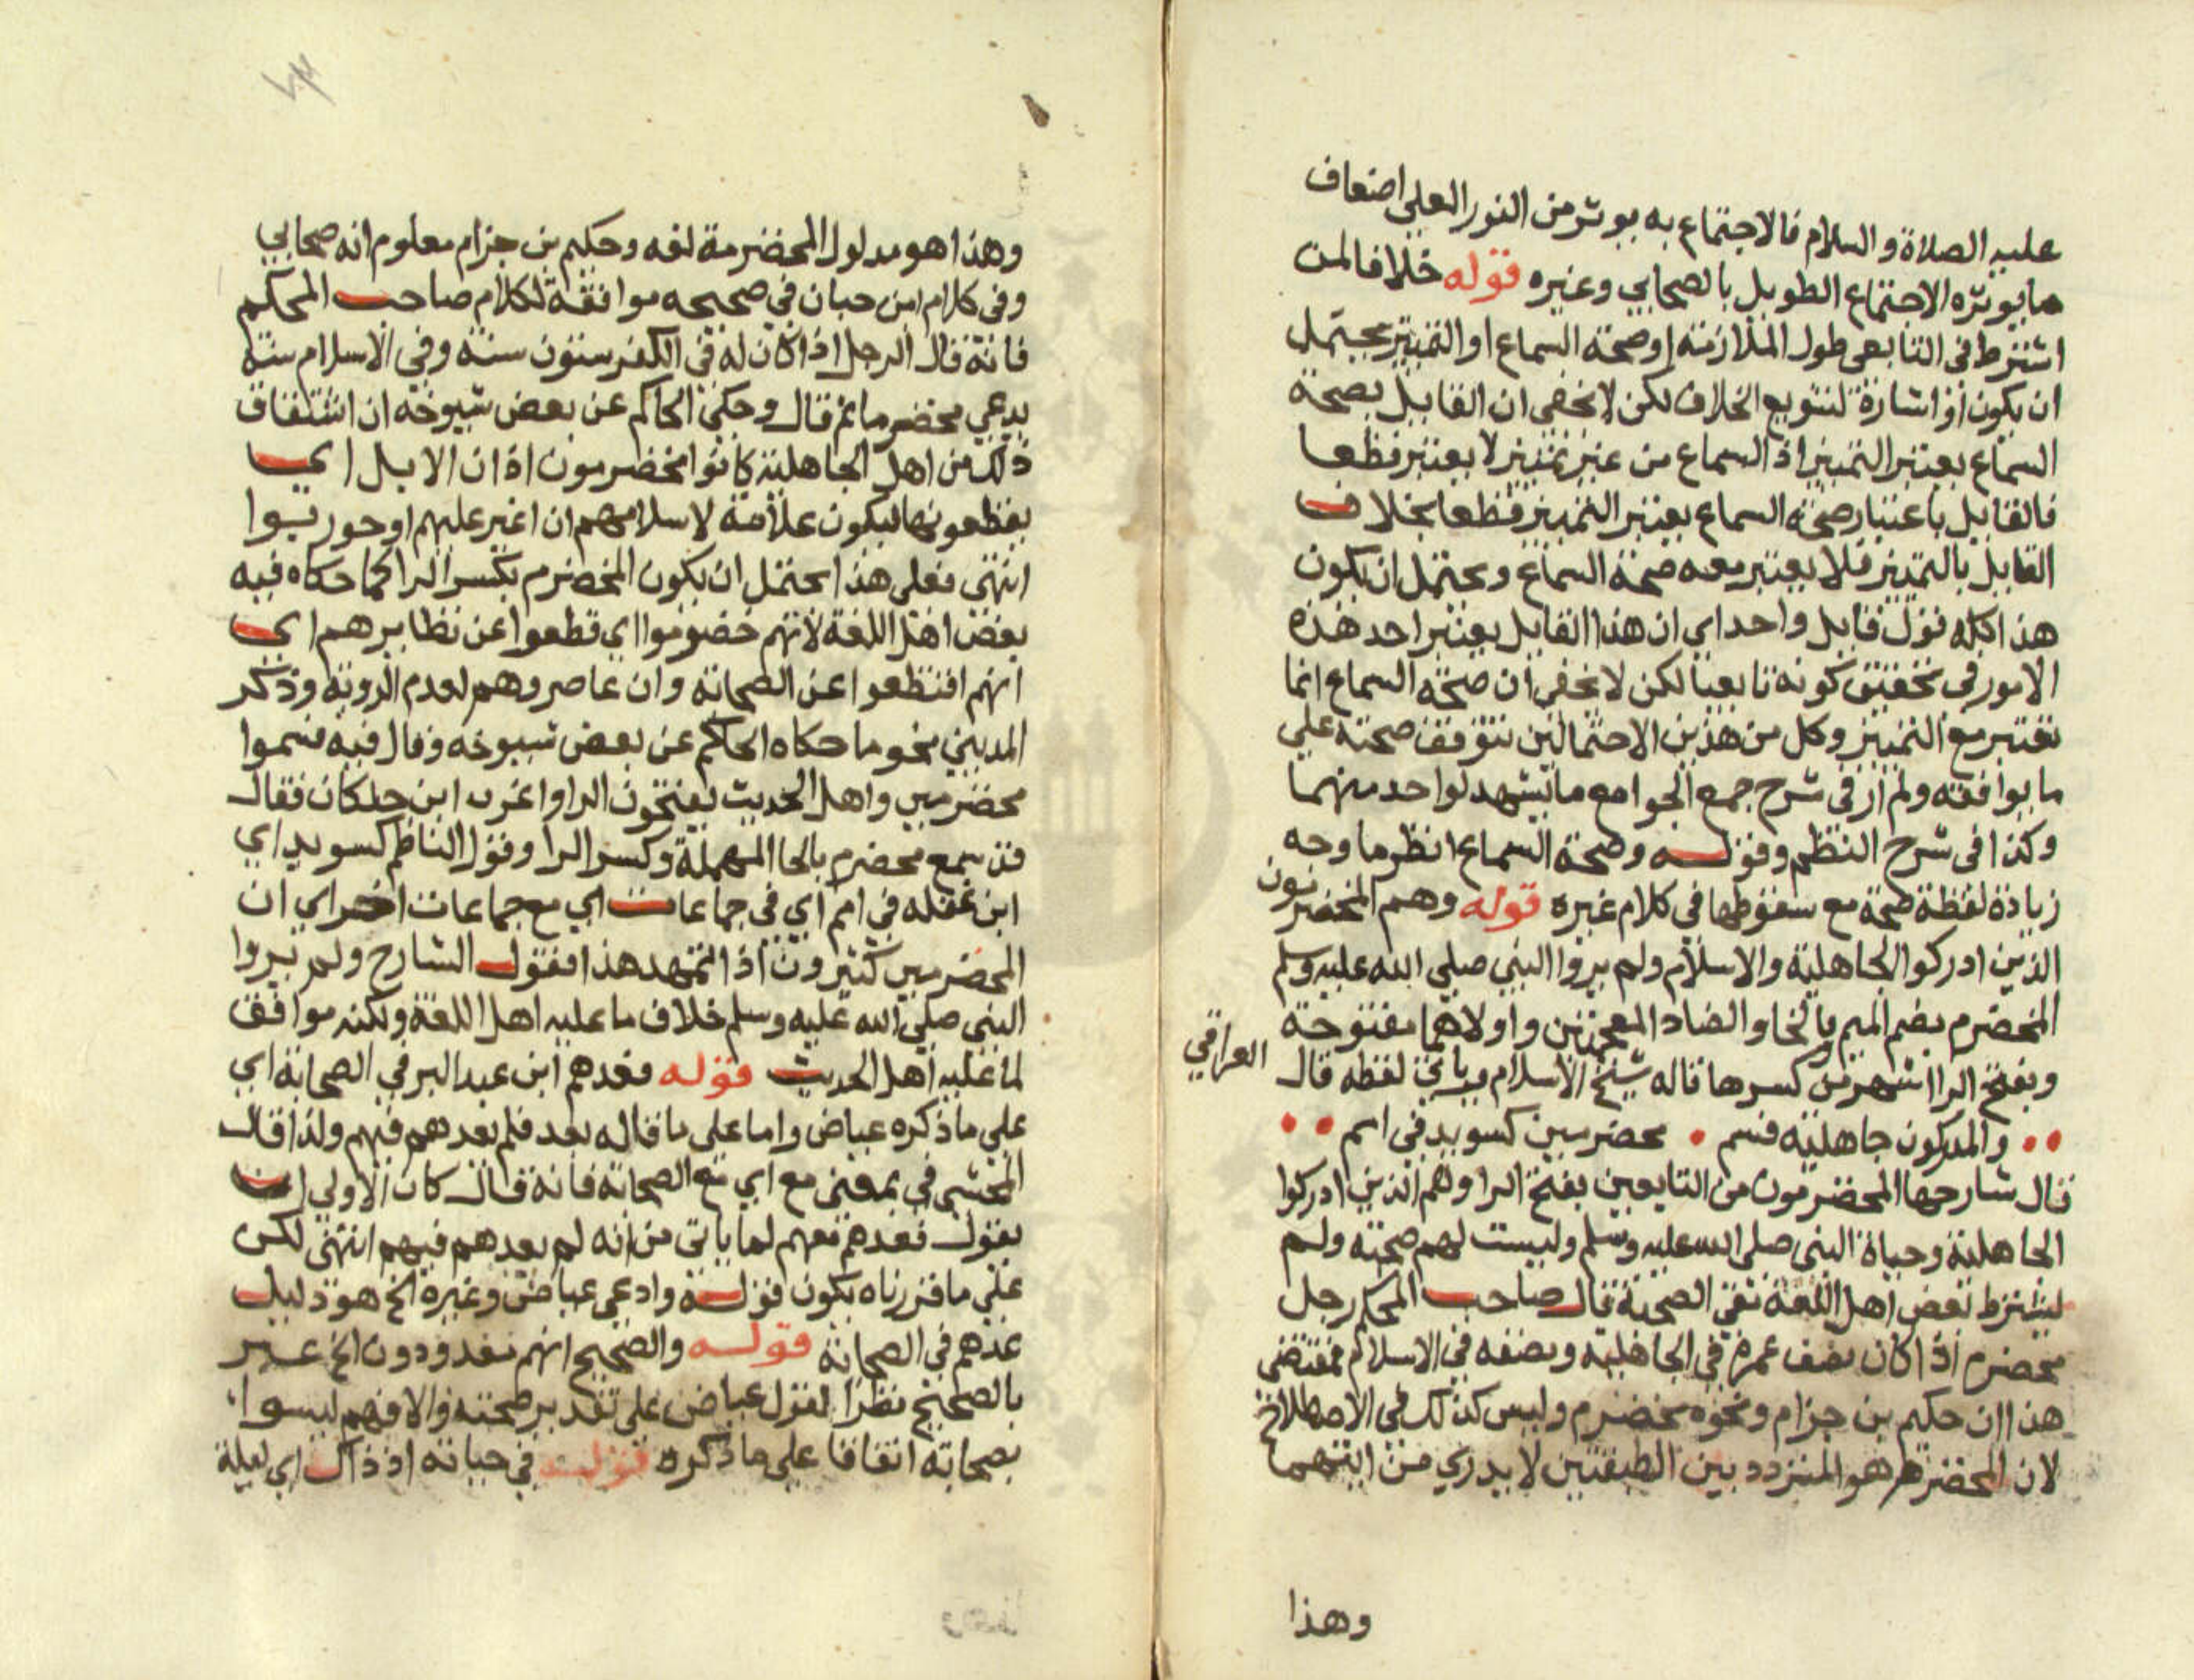 عليه الصلاة والسلام فالاجتماع به يوثر من النور القلبي اضعاف
ما يوثره الاجتماع الطويل بالصحابي وغيره قوله خلافا لمن
اشترط في التابعي طول الملازمة او صحة السماع او التمييز يحتمل
ان يكون او اشارة لتنويع الخلاف لكن لا يخفى ان القايل بصحة
السماع يعتبر التمييز اذ السماع من غير تمييز لا يعتبر قطعا
فالقايل باعتبار صحة السماع يعتبر التمييز قطعا بخلاف
القايل بالتمييز فلا يعتبر معه صحة السماع ويحتمل ان يكون
هذا كله قول قايل واحد اي ان هذا القايل يعتبر احد هذه
الامور في تحقيق كونه تابعيا لكن لا يخفى ان صحة السماع انما
تعتبر مع التمييز وكل من هذين الاحتمالين تتوقف صحته على
ما يوافقه ولم ار في شرح جمع الجوامع ما يشهد لواحد منهما
وكذا في شرح النظم وقوله وصحة السماع انظر ما وجه
زيادة لفظة صحة مع سقوطها في كلام غيره قوله وهم المخضرمون
الذين ادركوا الجاهلية والاسلام ولم يروا النبي صلى الله عليه وسلم
المخضرم بضم الميم بالخا والضاد المعجمتين واولاهما مفتوحة
وبفتح الرا اشهر من كسرها قاله شيخ الاسلام وياتي لفظه قال العراقي
والمدركون جاهلية فسم محضرمين كسويد في امم
قال شارحها المخضرمون من التابعين بفتح الرا وهم الذين ادركوا
الجاهلية وحياة النبي صلى الله عليه وسلم وليست لهم صحبة ولم
يشترط بعض اهل اللغة نفي الصحبة قال صاحب المحكم رجل
مخضرم اذا كان نصف عمره في الجاهلية ونصفه في الاسلام فمقتضى
هذا ان حكيم بن حزام ونحوه مخضرم وليس كذلك في الاصطلاح
لان المخضرم هو المتردد بين الطبقتين لا يدري من ايتهما
وهذا
وهذا هو مدلول المخضرمة لغه وحكيم بن حزام معلوم انه صحابي
وفي كلام ابن حبان في صحيحه موافقة لكلام صاحب المحكم
فانه قال الرجل اذا كان له في الكفر ستون سنة وفي الاسلام سنة
يدعي مخضرما ثم قال وحكى الحاكم عن بعض شيوخه ان اشتقاق
ذلك من اهل الجاهلية كانوا يخضرمون اذان الابل اي
يقطعونها ليكون علامة لاسلامهم ان اغير عليهم او حوربوا
انتهى فعلى هذا يحتمل ان يكون المخضرم بكسر الرا كما حكاه فيه
بعض اهل اللغة لانهم خضرموا اي قطعوا عن نظايرهم اي
انهم اقتطعوا عن الصحابة وان عاصروهم لعدم الروية وذكر
المديني نحو ما حكاه الحاكم عن بعض شيوخه وقال فيه فسموا
مخضرمين واهل الحديث يفتحون الرا واغرب ابن خلكان فقال
قد سمع محضرم بالحا المهملة وكسر الرا وقول الناظم كسويد اي
ابن غفله في امم اي في جماعات اي مع جماعات اخر اي ان
المخضرمين كثيرون اذا تمهد هذا فقول الشارح ولم يروا
النبي صلى الله عليه وسلم خلاف ما عليه اهل اللغة ولكنه موافق
لما عليه اهل الحديث قوله فعدهم ابن عبد البر في الصحابة اي
على ما ذكره عياض واما على ما قاله بعد فلم يعدهم فيهم ولذا قال
المحشي في بمعنى مع اي مع الصحابة فانه قال كان الاولى ان
يقول فعدهم معهم لما ياتي من انه لم يعدهم فيهم انتهى لكن
على ما قررناه يكون قوله وادعى عياض وغيره الخ هو دليل
عدهم في الصحابة قوله والصحيح انهم معدودون الخ عبر
بالصحيح نظرا لقول عياض على تقدير صحته والا فهم ليسوا
بصحابة اتفاقا على ما ذكره قوله في حياته اذ ذاك اي ليلة